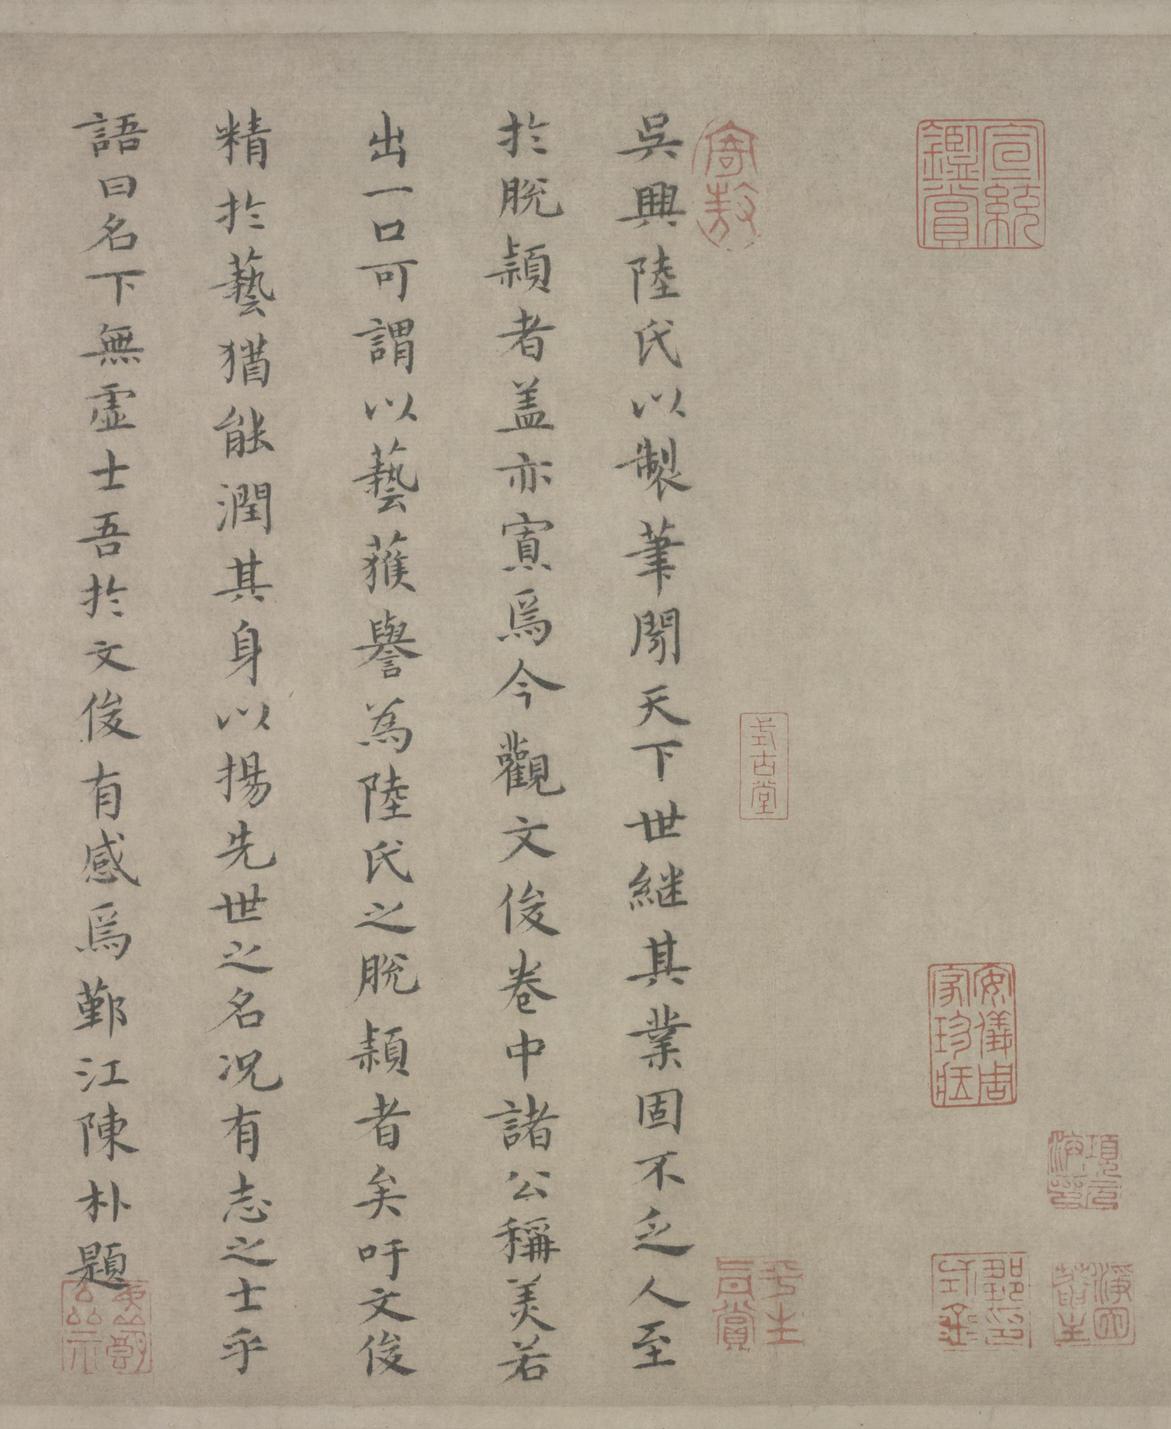 吳興陸氏以製筆聞天下世継其業固不乏人至
於脫穎者盖亦寡焉今觀文俊卷中諸公稱美若
出一口可謂以藝獲譽為陸氏之脫穎者矣吁文俊
精於藝猶能潤其身以揚先世之名况有志之士乎
語曰名下無虛士吾於文俊有感焉鄞江陳朴題
宣統鑑賞
式古堂
安儀周家珍藏